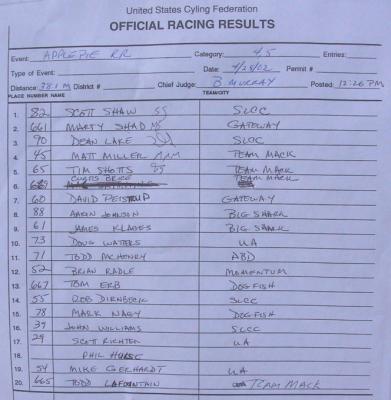 United States Cyling Federation
OFFICIAL RACING RESULTS
Event: APPLEPIE RR Category: 4,5 Entries:
Type of Event: Date: 4/28/02 Permit #
Distance: 38.1 M District # Chief Judge: B MURRAY Posted: 12:26 PM
PLACE NUMBER NAME TEAM/CITY
1. 82 SCOTT SHAW SS SLCC
2. 661 MARTY SHAD MS GATEWAY
3. 90 DEAN LAKE SLCC
4. 45 MATT MILLER MMM TEAM MACK
5. 65 TIM SHOTTS TEAM MACK
6. CURTIS BRICE TEAM MACK
7. 60 DAVID GATEWAY
8. 88 AARON JOHNSON BIG SHARK
9. 61 JAMES KLAGES BIG SHARK
10. 73 DOUG WATERS UA
11. 71 TODD MCHENRY ABD
12. 52 BRIAN RADLE MOMENTUM
13. 667 TOM ERB DOGFISH
14. 55 ROB DIRNBECK SLCC
15. 78 MARK NAGY DOGFISH
16. 39 JOHN WILLIAMS SLCC
17. 29 SCOTT RICHTER UA
18. PHIL
19. 54 MIKE GERHARDT UA
20. 665 TODD LAFOUNTAIN TEAM MACK